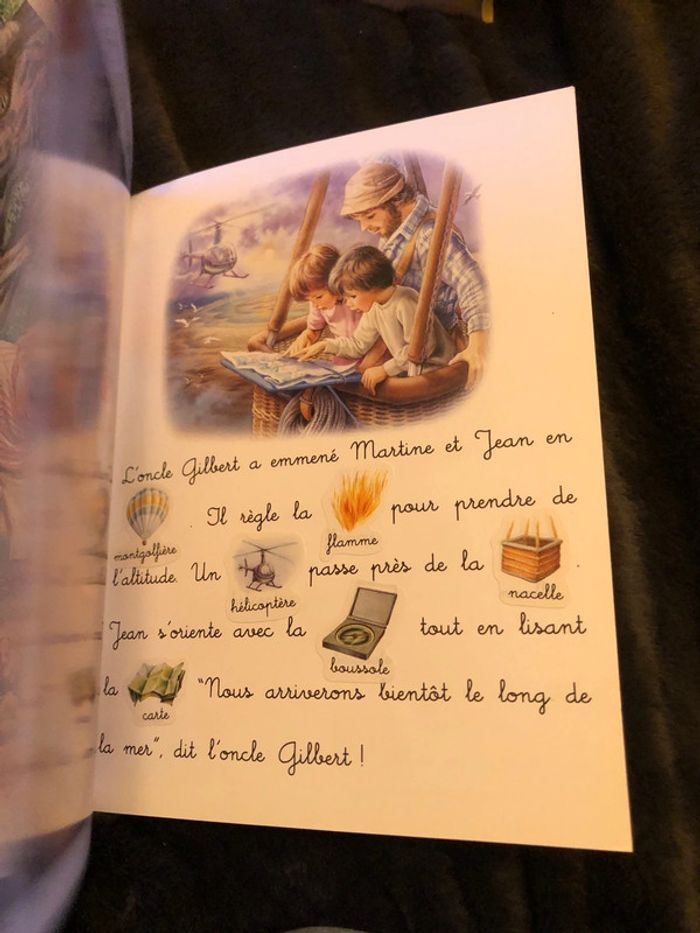 L'oncle Gilbert a emmené Martine et Jean en
montgolfière . Il règle la flamme pour prendre de
l'altitude. Un hélicoptère passe près de la nacelle .
Jean s'oriente avec la boussole tout en lisant
la carte "Nous arriverons bientôt le long de
la mer", dit l'oncle Gilbert !